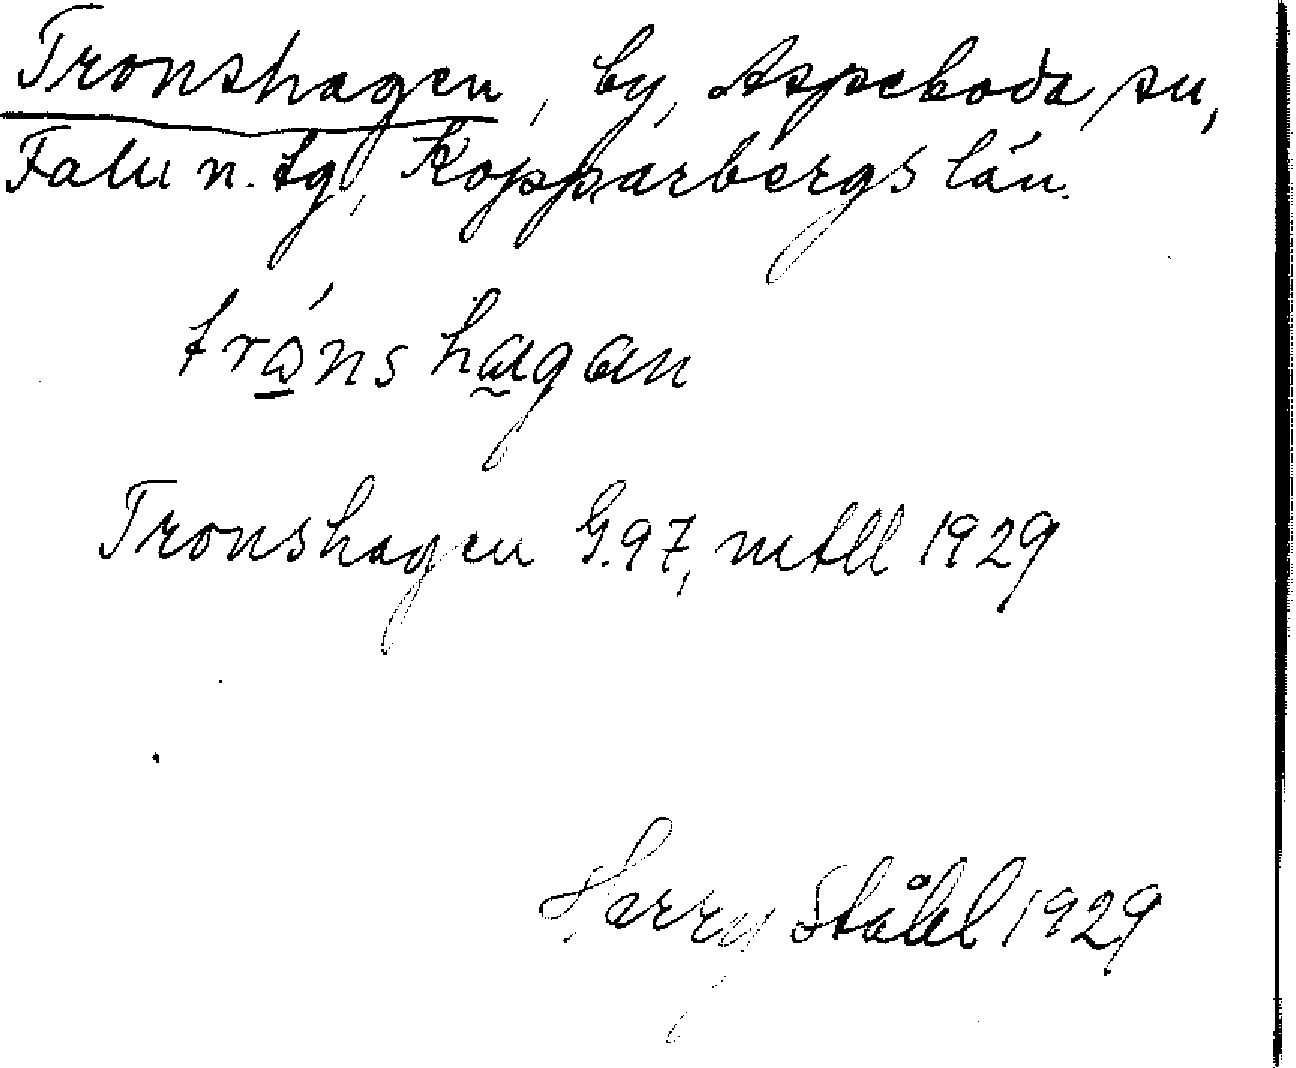 Tronshagen, by, Aspeboda sn,
Falu n. tg, Kopparbergs län.
trónshagan
Tronshagen G.97, mtll 1929
Harry Ståhl 1929